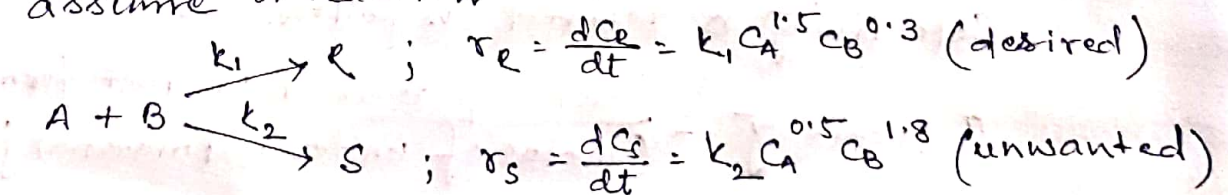 assume
k₁ R ; r_R = dC_R/dt = k₁ C_A^1.5 C_B^0.3 (desired)
A + B
k₂ S ; r_S = dC_S/dt = k₂ C_A^0.5 C_B^1.8 (unwanted)